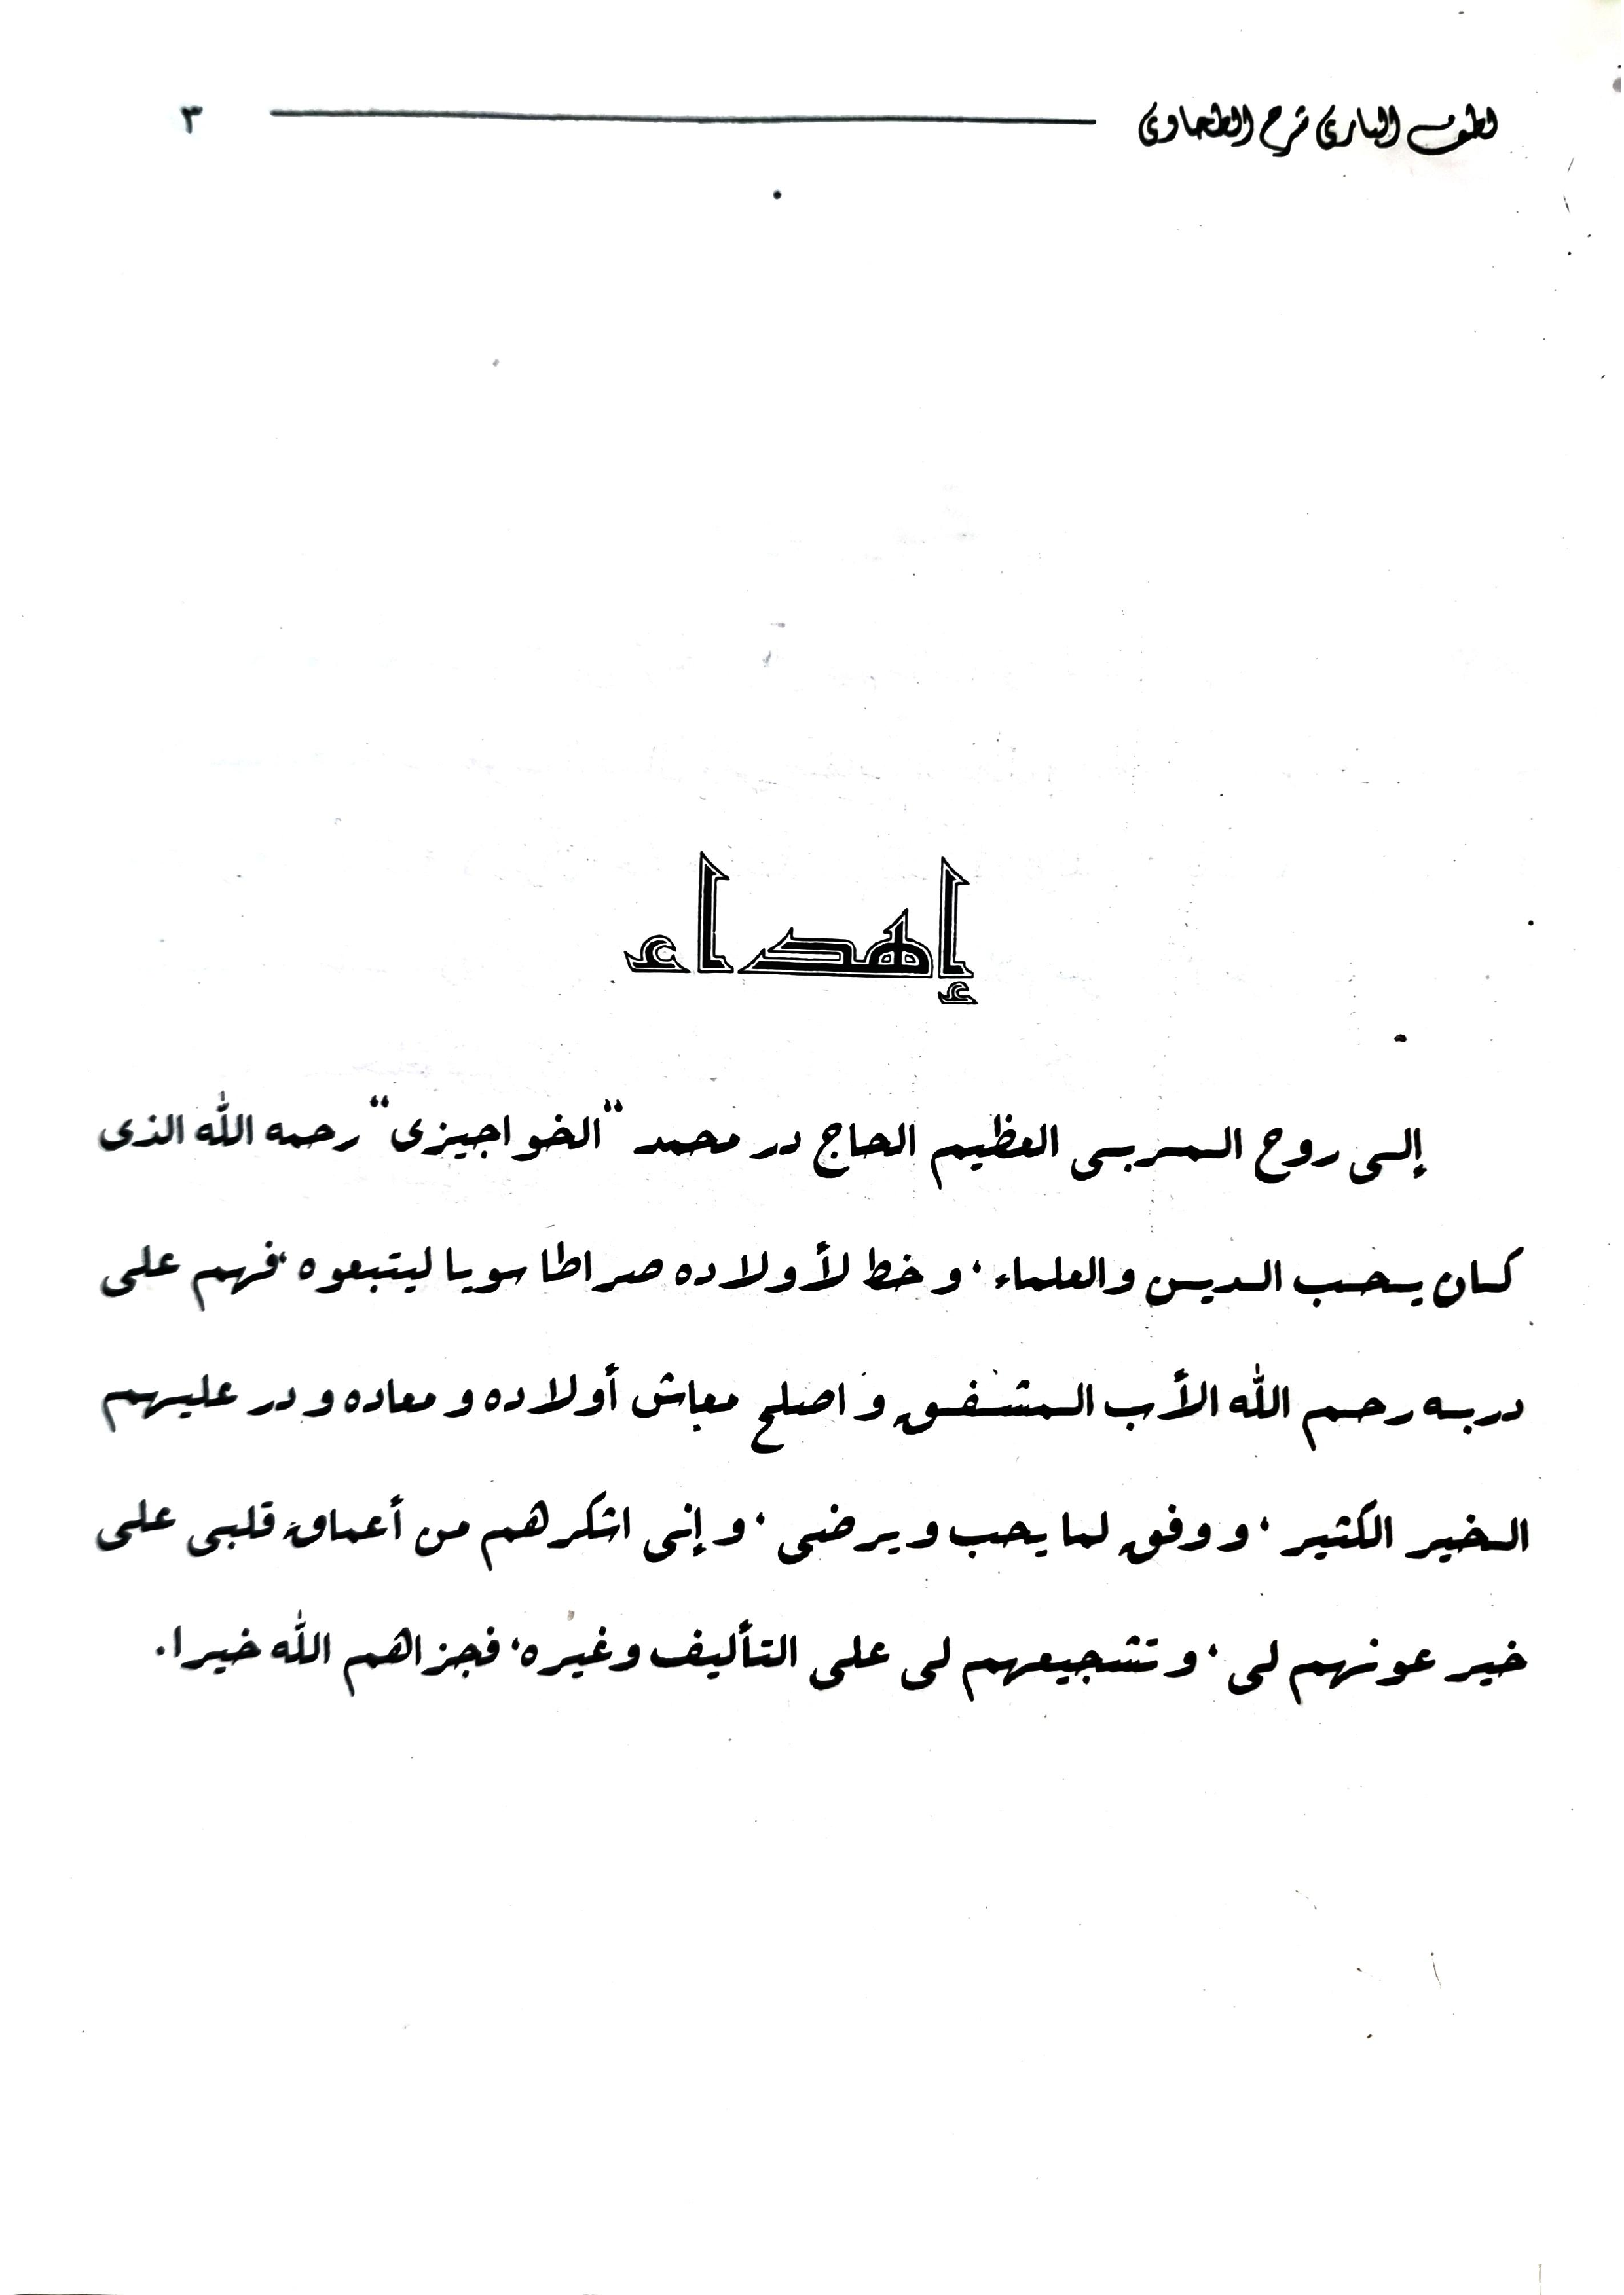 لطف الباری شرح الطحاوی ٣
إهداء
إلی روح المربی العظیم الحاج در محمد "الخواجیزی" رحمه الله الذی
کان یحب الدین والعلماء، و خط لأولاده صراطا سویا لیتبعوه، فهم علی
دربه رحم الله الأب المشفق و اصلح معاش أولاده و معاده و در علیهم
الخیر الکثیر، و وفق لما یحب و یرضی، و إنی اشکرهم من أعماق قلبی علی
خیر عونهم لی، و تشجیعهم لی علی التألیف وغیره، فجزاهم الله خیرا.